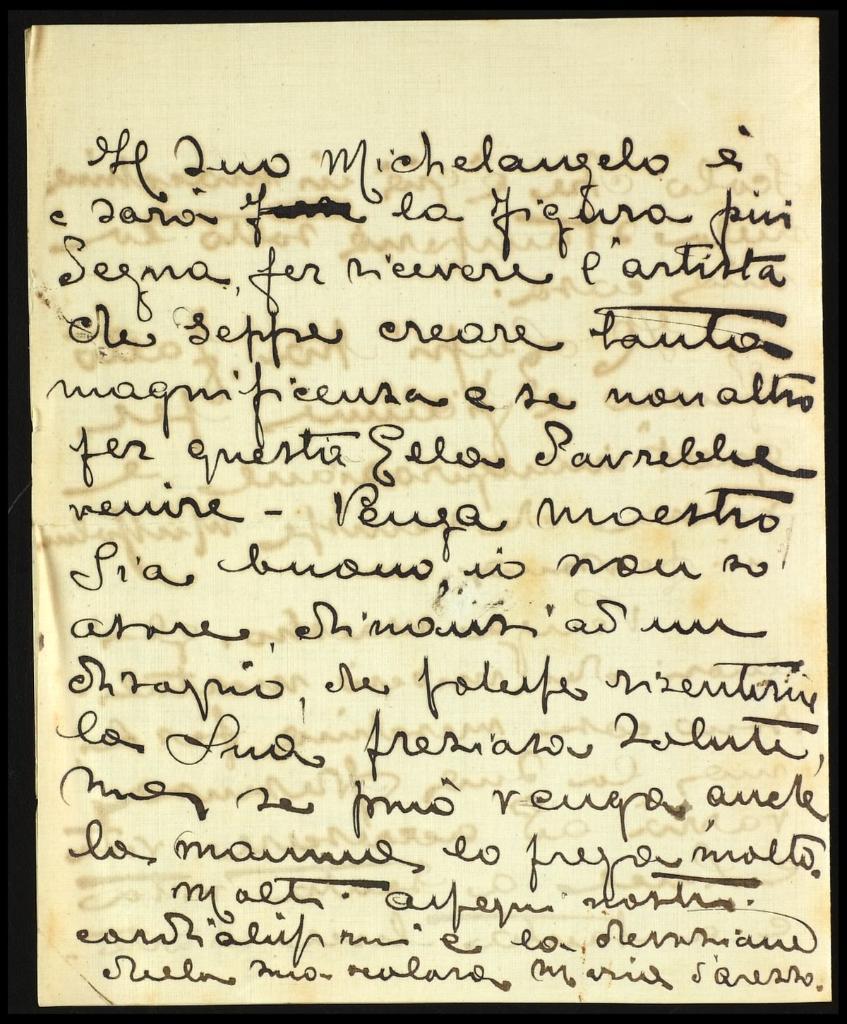 Il Suo Michelangelo è
e sarà la figura più
degna, per ricevere l'artista
che seppe creare tanta
magnificenza e se non altro
per questa Ella dovrebbe
venire - Venga maestro
Sia buono, io non so
dinanzi ad un
disagio, che potesse risentirne
la Sua preziosa salute,
ma se può venga anche
la mamma lo prega molto.
Molti ossequi nostri
cordialissimi e la devozione
della sua scolara Maria d'Arezzo.